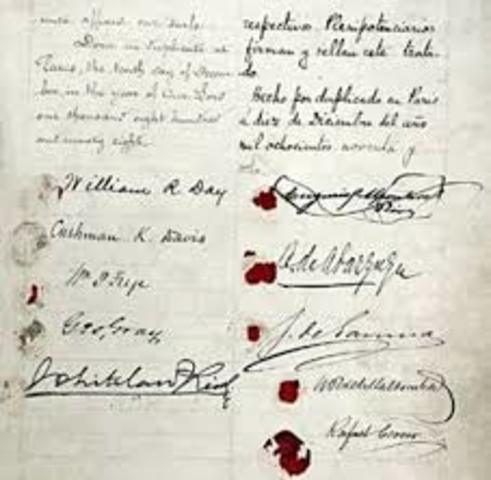 unto affixed our seals.
Done in Duplicate at
Paris, the tenth day of Decem
ber, in the year of Our Lord
one thousand eight hundred
and ninety eight.
William R Day
Cushman K. Davis
Wm P Frye
Geo, Gray
Whitelaw Reid
respectivos Plenipotenciarios
firman y sellan este trata
do.
Hecho por duplicado en Paris
á diez de Diciembre del año
mil ochocientos noventa y
B. de Abarzuza
J. de Garnica
W R de Villa Urrutia
Rafael Cerero